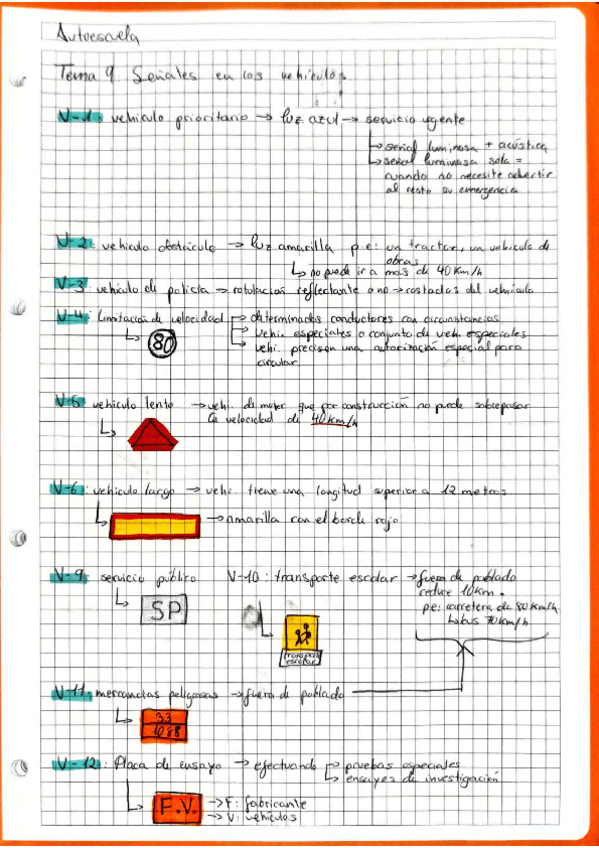 Autoescuela
Tema 9: Señales en los vehículos
V-1: vehículo prioritario → luz azul → servicio urgente
↳ señal luminosa + acústica
↳ señal luminosa sola =
cuando no necesite advertir
al resto su emergencia
V-2: vehículo obstáculo → luz amarilla p.e: un tractor, un vehículo de
obras
↳ no puede ir a más de 40 km/h
V-3: vehículo de policía → rotulación reflectante o no → costados del vehículo
V-4: Limitación de velocidad → determinados conductores con circunstancias
→ vehi. especiales o conjunto de vehi. especiales
→ vehi. precisen una autorización especial para
circular.
80
V-5: vehículo lento → vehi. de motor que por construcción no puede sobrepasar
la velocidad de 40 km/h
V-6: vehículo largo → vehi. tiene una longitud superior a 12 metros
→ amarilla con el borde rojo
V-9: servicio público
SP
V-10: transporte escolar → fuera de poblado
reduce 10km.
pe: carretera de 80 km/h
↳ bus 70 km/h
transporte
escolar
V-11: mercancías peligrosas → fuera de poblado
33
1088
V-12: Placa de ensayo → efectuando → pruebas especiales
↳ ensayos de investigación
F.V.
→ F: fabricante
→ V: vehículos